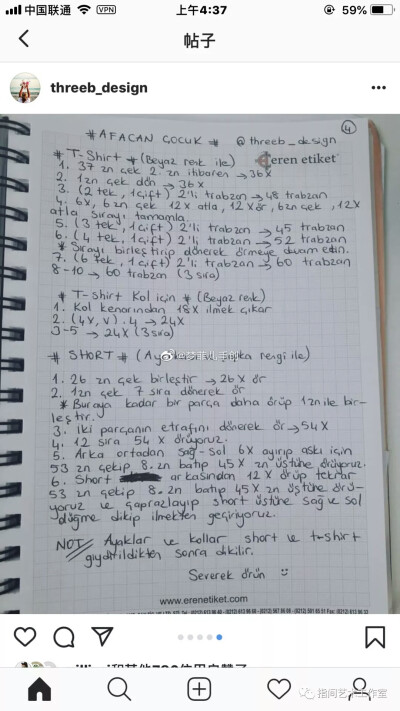 中国联通 VPN 上午4:37 59%
帖子
threeb_design
4
* AFACAN ÇOCUK * @threeb_design
* T-Shirt * (Beyaz renk ile) eren etiket
1. 37 zn çek 2. zn itibaren → 36x
2. 1zn çek dön → 36x
3. (2 tek, 1çift) 2'li trabzan → 48 trabzan
4. 6x, 6zn çek 12x atla, 12x ör, 6zn çek, 12x
atla sırayı tamamla.
5. (3 tek, 1çift) 2'li trabzan → 45 trabzan
6. (4 tek, 1çift) 2'li trabzan → 52 trabzan
* Sırayı birleştirip dönerek örmeye devam edin.
7. (6 tek, 1çift) 2'li trabzan → 60 trabzan
8-10 → 60 trabzan (3 sıra)
* T-shirt Kol için * (Beyaz renk)
1. Kol kenarından 18x ilmek çıkar
2. (4x, v). 4 → 24x
3-5 → 24x (3 sıra)
* SHORT * (Aya rengi ile)
1. 26 zn çek birleştir → 26x ör
2. 1zn çek 7 sıra dönerek ör
* Buraya kadar bir parça daha örüp 1zn ile bir-
leştir.
3. İki parçanın etrafını dönerek ör → 54x
4. 12 sıra 54x örüyoruz.
5. Arka ortadan sağ-sol 6x ayırıp askı için
53 zn çekip 8. zn batıp 45x zn üstüne örüyoruz.
6. Short arkasından 12x örüp tekrar
53 zn çekip 8. zn batıp 45x zn üstüne örü-
yoruz ve çaprazlayıp short üstüne sağ ve sol
düğme dikip ilmekten geçiriyoruz.
NOT// Ayaklar ve kollar short ve t-shirt
giydirildikten sonra dikilir.
Severek örün
www.erenetiket.com
指间艺术工作室